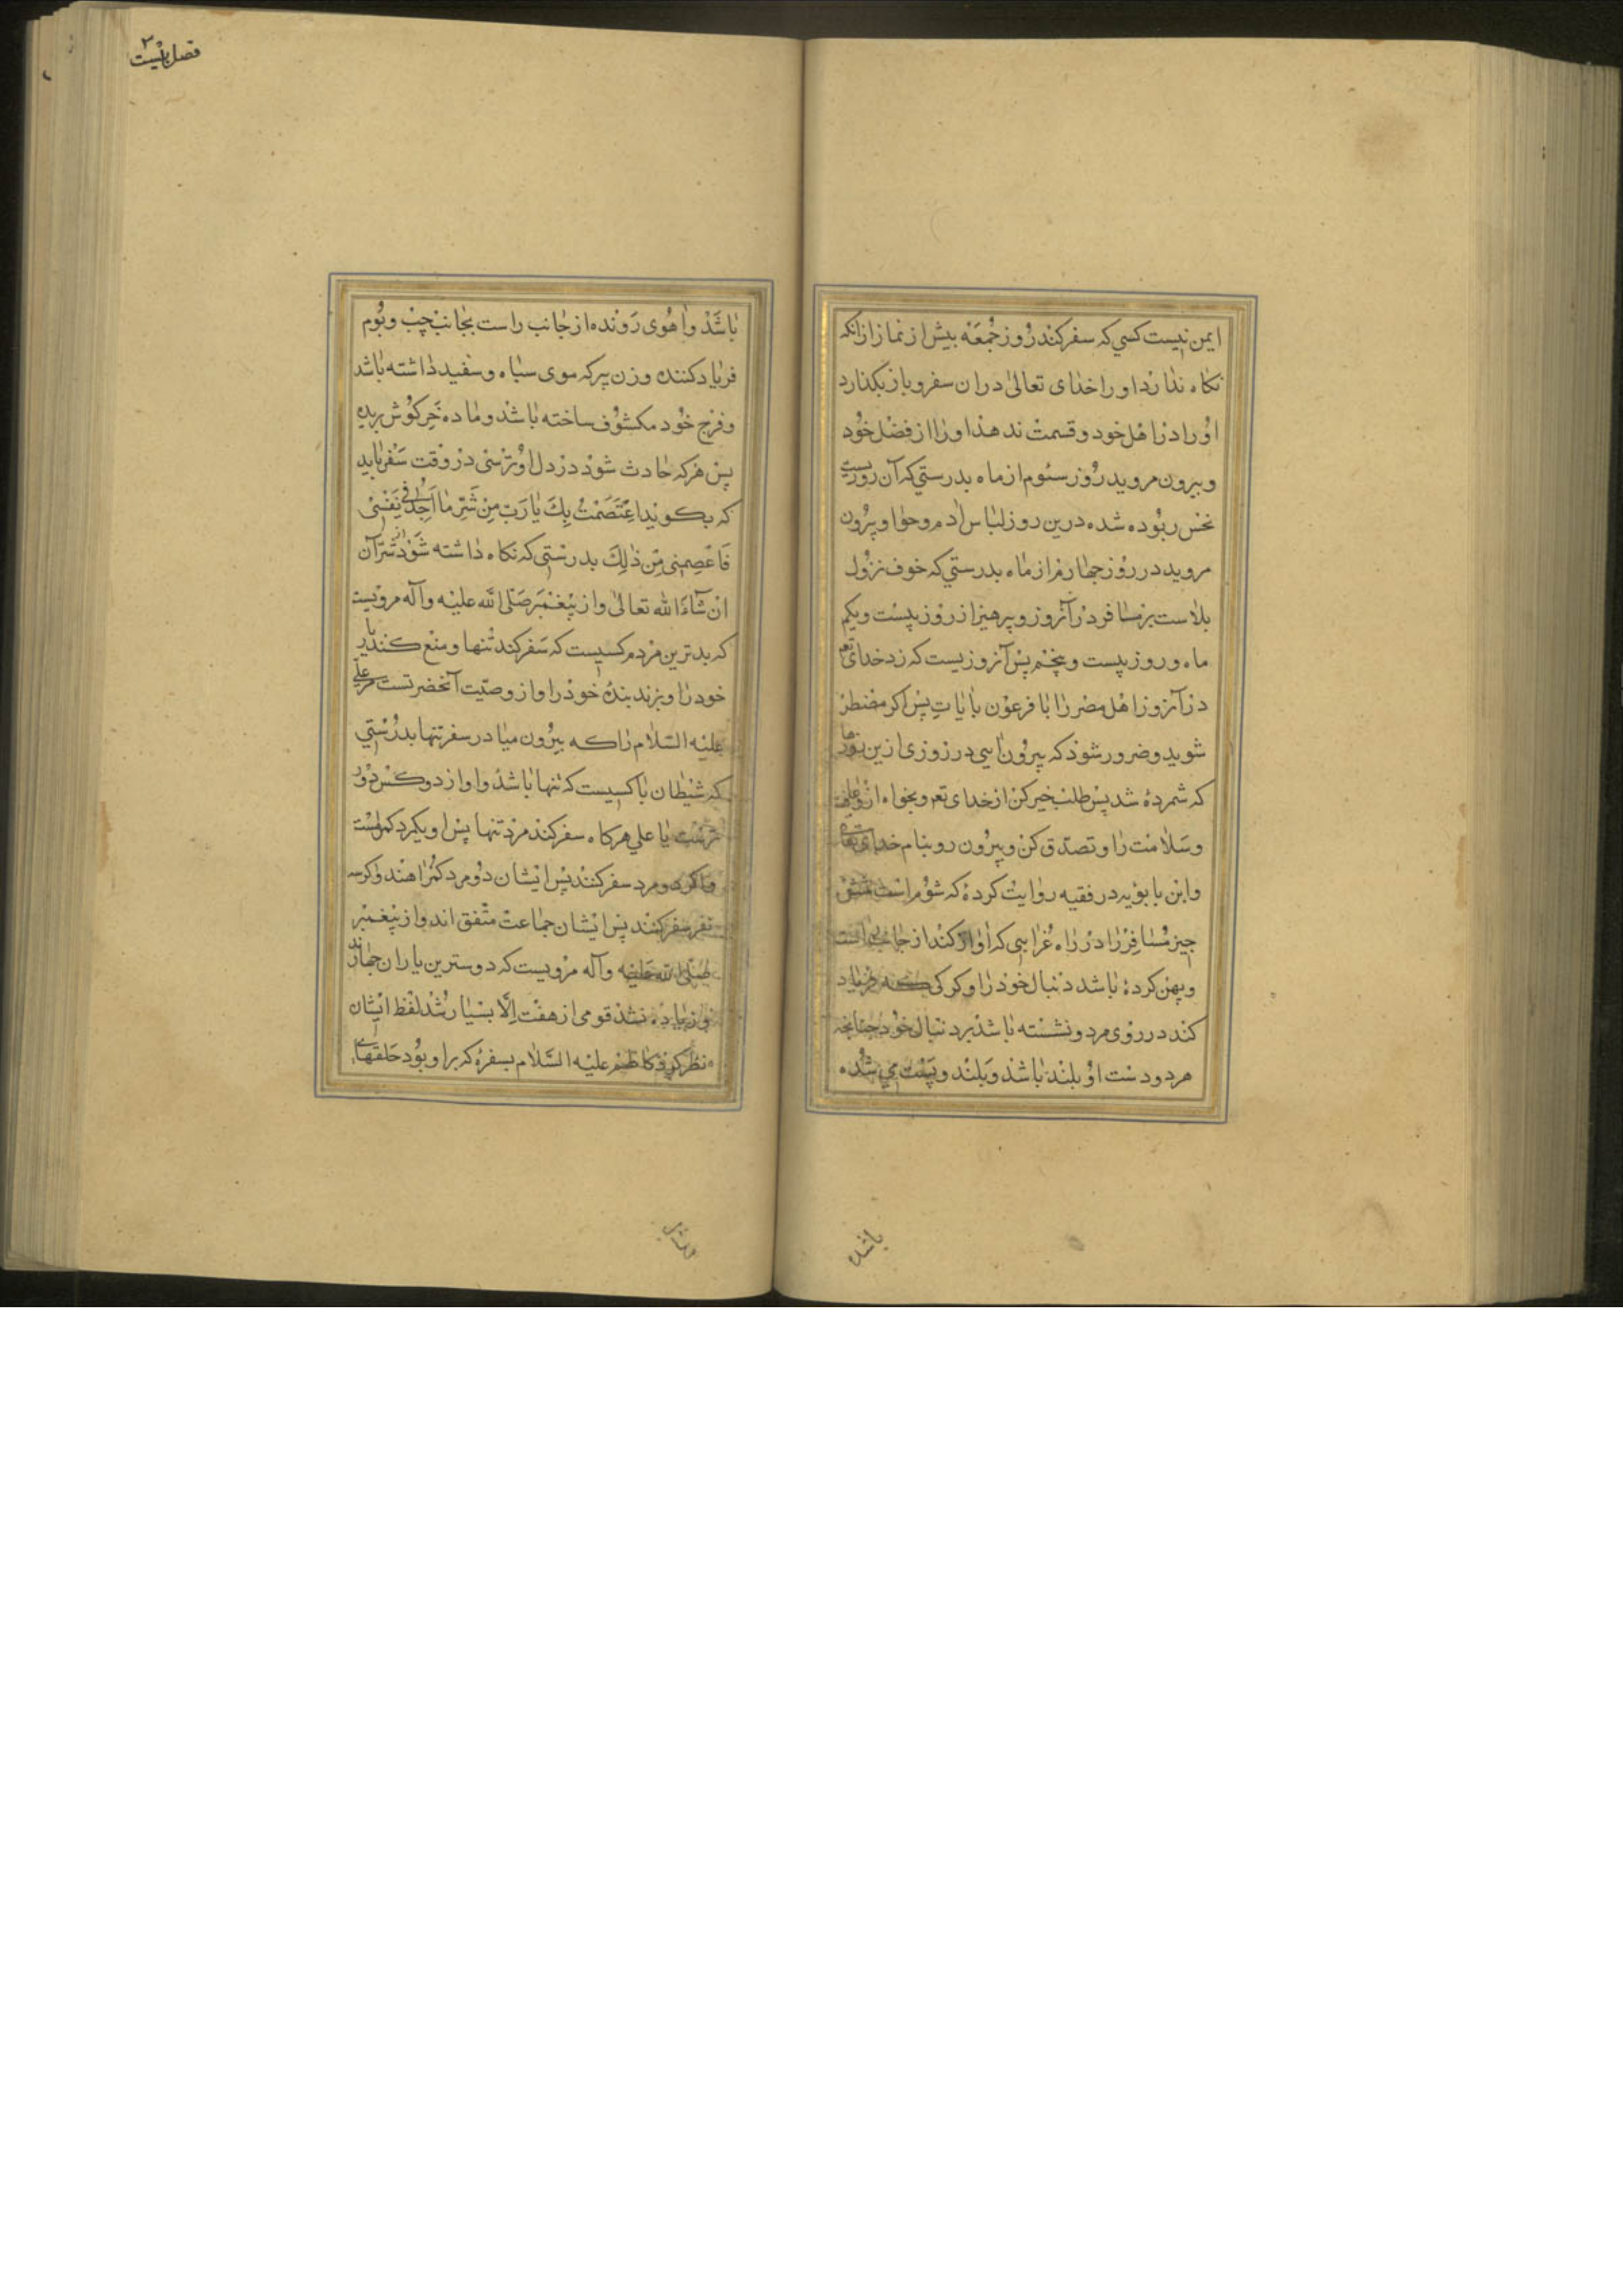 ایمن نیست کسی که سفر کند روز جمعه پیش از نماز از آنکه
نکاه ندارد او را خدای تعالی در ان سفر و باز بکذارد
او را در اهل خود و قسمت ندهد او را از فضل خود
و بیرون مروید روز سئوم از ماه بدرستی که آن روزیست
نحس ربوده شده درین روز لباس ادم و حوا و بیرون
مروید در روز جهارم از ماه بدرستی که خوف نزول
بلاست بر مسافر در آنروز و پرهیز از روز بیست و یکم
ماه و روز بیست و پنجم پس آنروزیست که زد خدای تع
در آنروز اهل مصر را با فرعون بایات پس اکر مضطر
شوید و ضرور شود که بیرون ایی در روزی ازین روزها
که شمرده شد پس طلب خیر کن از خدای تع و بخواه ازو عافیت
و سلامت را و تصدق کن و بیرون رو بنام خدای تعالی
و ابن بابویه در فقیه روایت کرده که شوم است شش
جیز مسافر را در راه غرابی که اواز کند از جانب راست
و پهن کرده باشد دنبال خود را و کرکی که فریاد
کند در روی مرد و نشسته باشد بر دنبال خود جنانجه
هر دو دست او بلند باشد و بلند و پست می شده
باشد
فصل بیست ۲
باشد و اهوی رونده از جانب راست بجانب چپ و بوم
فریاد کننده و زن پیر که موی سیاه و سفید داشته باشد
و فرج خود مکشوف ساخته باشد و ماده خر کوش بریده
پس هر که حادث شود در دل او ترسی در وقت سفر باید
که بکوید اِعْتَصَمْتُ بِكَ یَا رَبِّ مِنْ شَرِّ مَا اَجِدُ فی نَفْسی
فَاعْصِمْنی مِنْ ذٰلِكَ بدرستی که نکاه داشته شود از شر آن
ان شآءَ الله تعالی و از پیغمبر صَلّی الله علیه وآله مرویست
که بدترین مردم کسیست که سفر کند تنها و منع کند یار
خود را و بزند بنده خود را و از وصیت آنحضرتست مر علی
علیه السلام را که بیرون میا در سفر تنها بدرستی
که شیطان با کسیست که تنها باشد و او از دو کس دور
ترست یا علی هرکاه سفر کند مرد تنها پس او یکمرد کمراهست
و اکر دو مرد سفر کنند پس ایشان دو مرد کمراهند و اکر سه
نفر سفر کنند پس ایشان جماعت متفق اند و از پیغمبر
صلی الله علیه وآله مرویست که دوسترین یاران جهارند
و زیاده نشد قومی از هفت اِلَّا بسیار شد لفظ ایشان
و نظر کرد کاظم علیه السلام بسفره که بر او بود حلقهای